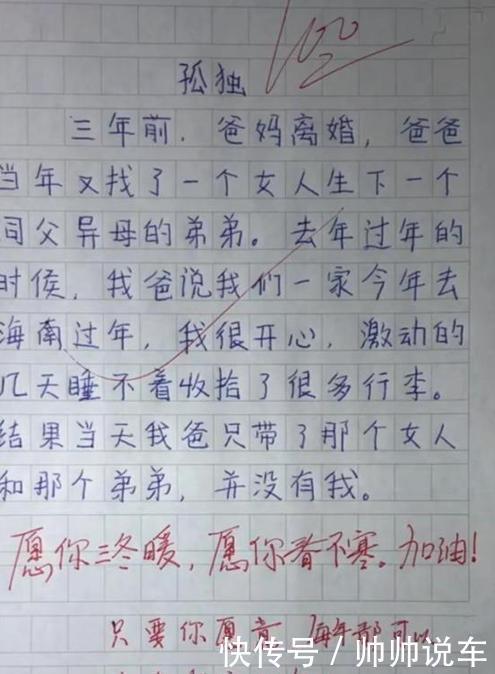 100
孤独
三年前.爸妈离婚,爸爸
当年又找了一个女人生下一个
同父异母的弟弟。去年过年的
时侯,我爸说我们一家今年去
海南过年,我很开心,激动的
几天睡不着收拾了很多行李。
结果当天我爸只带了那个女人
和那个弟弟,并没有我。
愿你三冬暖,愿你春不寒。加油!
只要你愿意 每年都可以
快传号/帅帅说车